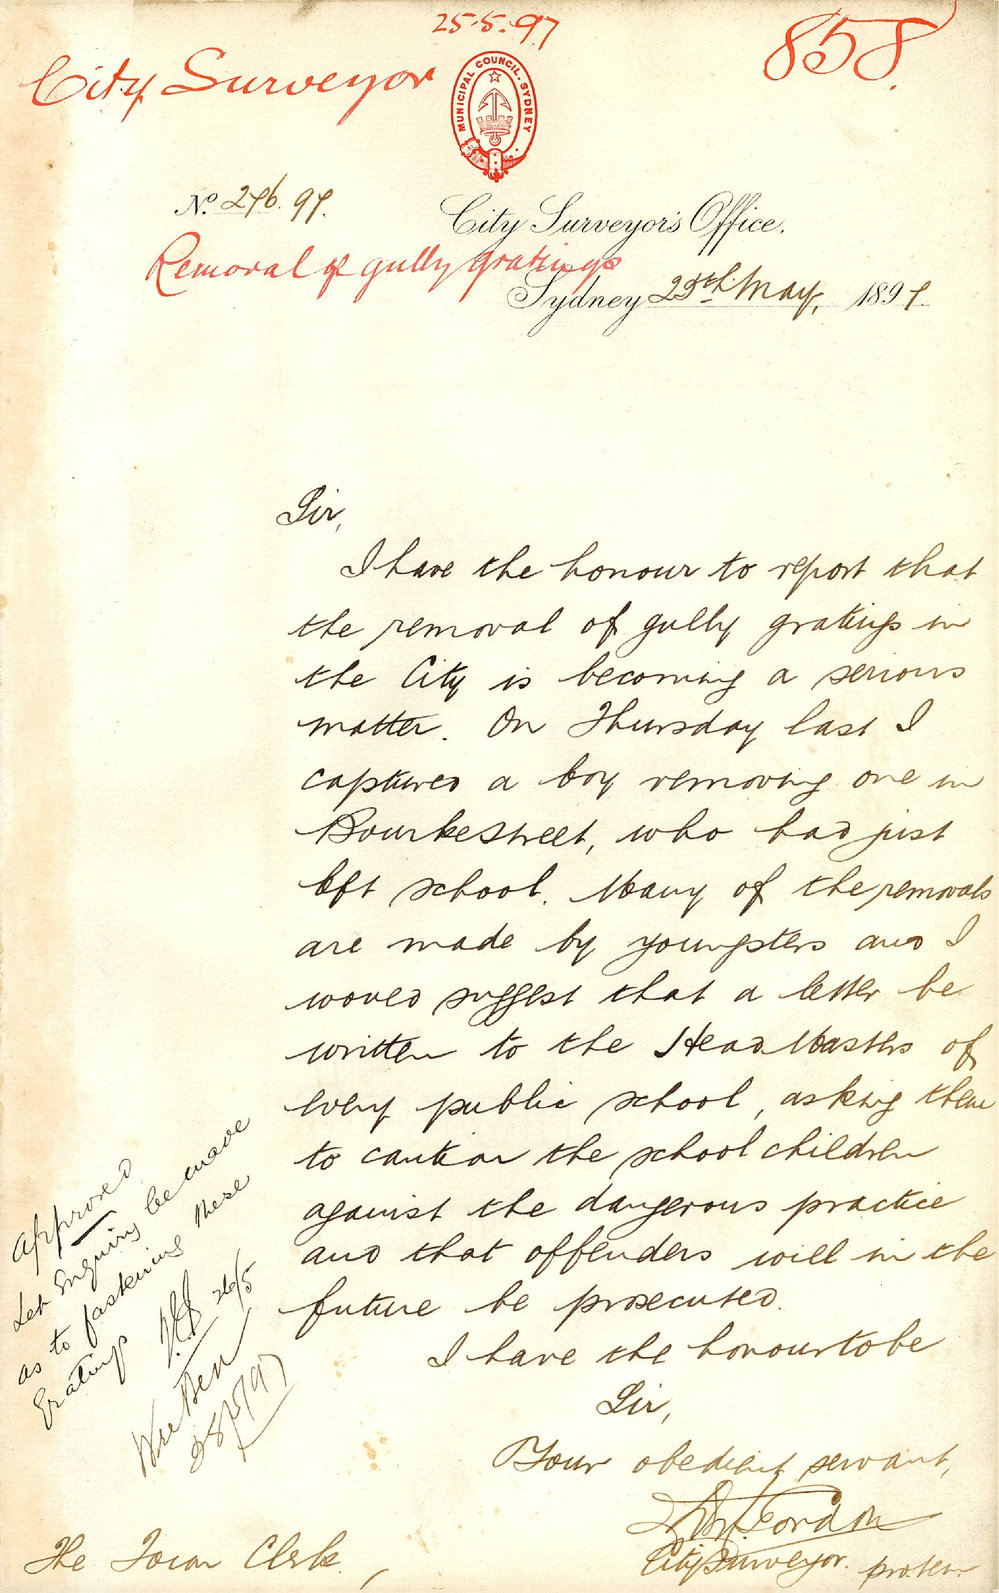 25.5.97
858.
City Surveyor
MUNICIPAL COUNCIL. SYDNEY
No. 276. 97.
City Surveyor's Office.
Removal of gully gratings
Sydney 25th May, 1897.
Sir,
I have the honour to report that
the removal of gully gratings in
the City is becoming a serious
matter. On Thursday last I
captured a boy removing one in
Bourke Street, who had just
left school. Many of the removals
are made by youngsters and I
would suggest that a letter be
written to the Head Masters of
every public school, asking them
to caution the school children
against the dangerous practice
and that offenders will in the
future be prosecuted.
I have the honour to be
Sir,
Your obedient servant,
Gordon
City Surveyor. pro tem
The Town Clerk,
Approved
Let Enquiry be made
as to fastening these
Gratings
26/5
Written
28/5/97